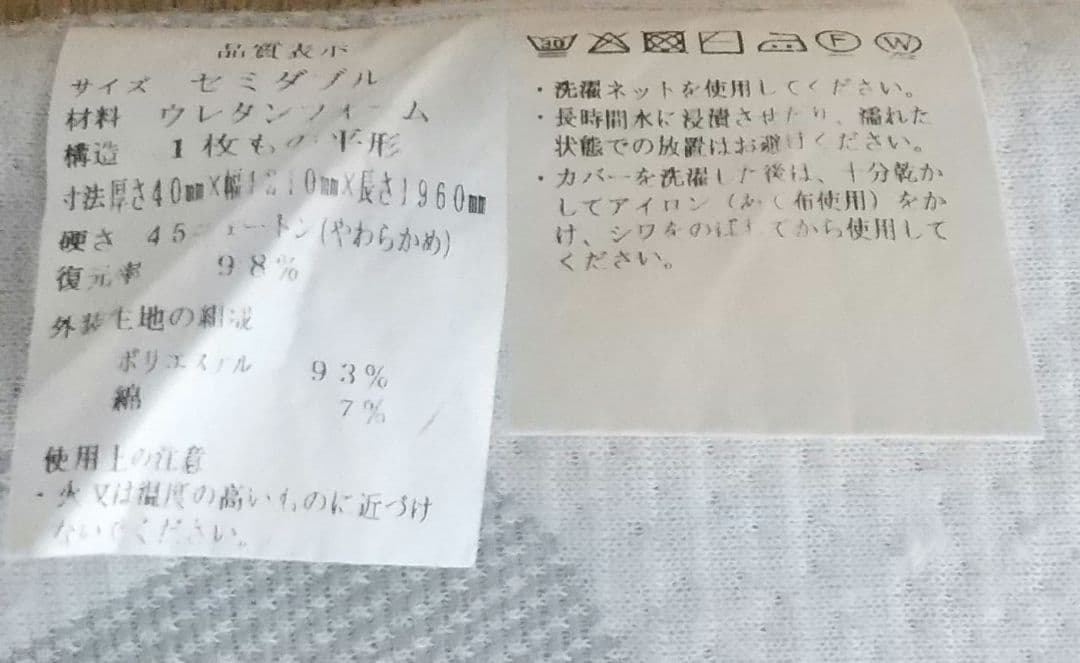 品質表示
サイズ セミダブル
材料 ウレタンフォーム
構造 1枚もの 平形
寸法 厚さ40mm×幅 ×長さ1960mm
硬さ 45ニュートン(やわらかめ)
復元率 98%
外装生地の組成
ポリエステル 93%
綿 7%
使用上の注意
・火又は温度の高いものに近づけ
ないでください。
30 F W
・洗濯ネットを使用してください。
・長時間水に浸漬させたり、濡れた
状態での放置はお避けください。
・カバーを洗濯した後は、十分乾か
してアイロン(あて布使用)をか
け、シワをのばしてから使用して
ください。